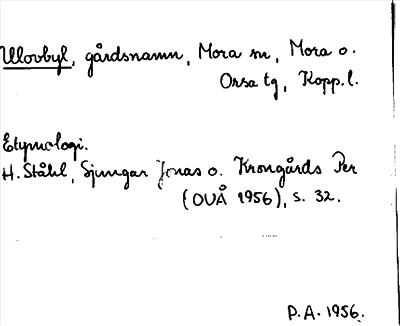 Ulovbyl, gårdsnamn, Mora sn, Mora o.
Orsa tg, Kopp.l.
Etymologi.
H. Ståhl, Sjungar Jonas o. Krongårds Per
(OUÅ 1956), s. 32.
P.A. 1956.